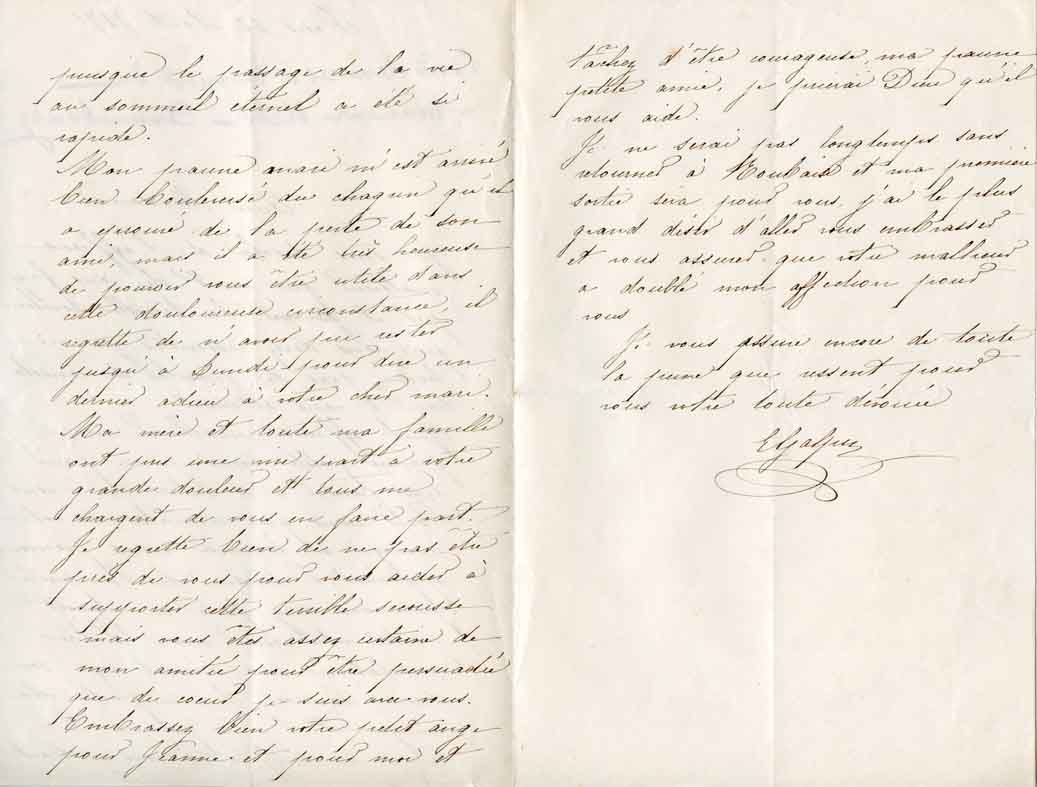 puisque le passage de la vie
au sommeil éternel a été si
rapide.
Mon pauvre mari m'est arrivé
bien bouleversé du chagrin qu'il
a éprouvé de la perte de son
ami, mais il a été très heureuse
de pouvoir vous être utile dans
cette douloureuse circonstance, il
regrette de n'avoir pu rester
jusqu'à Lundi pour dire un
dernier adieu à votre cher mari.
Ma mère et toute ma famille
ont pris une vive part à votre
grande douleur et tous me
chargent de vous en faire part.
Je regrette bien de ne pas être
près de vous pour vous aider à
supporter cette terrible secousse
mais vous êtes assez certaine de
mon amitié pour être persuadée
que de coeur je suis avec vous.
Embrassez bien votre petit ange
pour Jeanne et pour moi et
tâchez d'être courageuse, ma pauvre
petite amie, je prierai Dieu qu'il
vous aide.
Je ne serai pas longtemps sans
retourner à Roubaix et ma première
sortie sera pour vous, j'ai le plus
grand désir d'aller vous embrasser
et vous assurer que votre malheur
a doublé mon affection pour
vous
Je vous assure encore de toute
la peine que ressent pour
vous votre toute dévouée